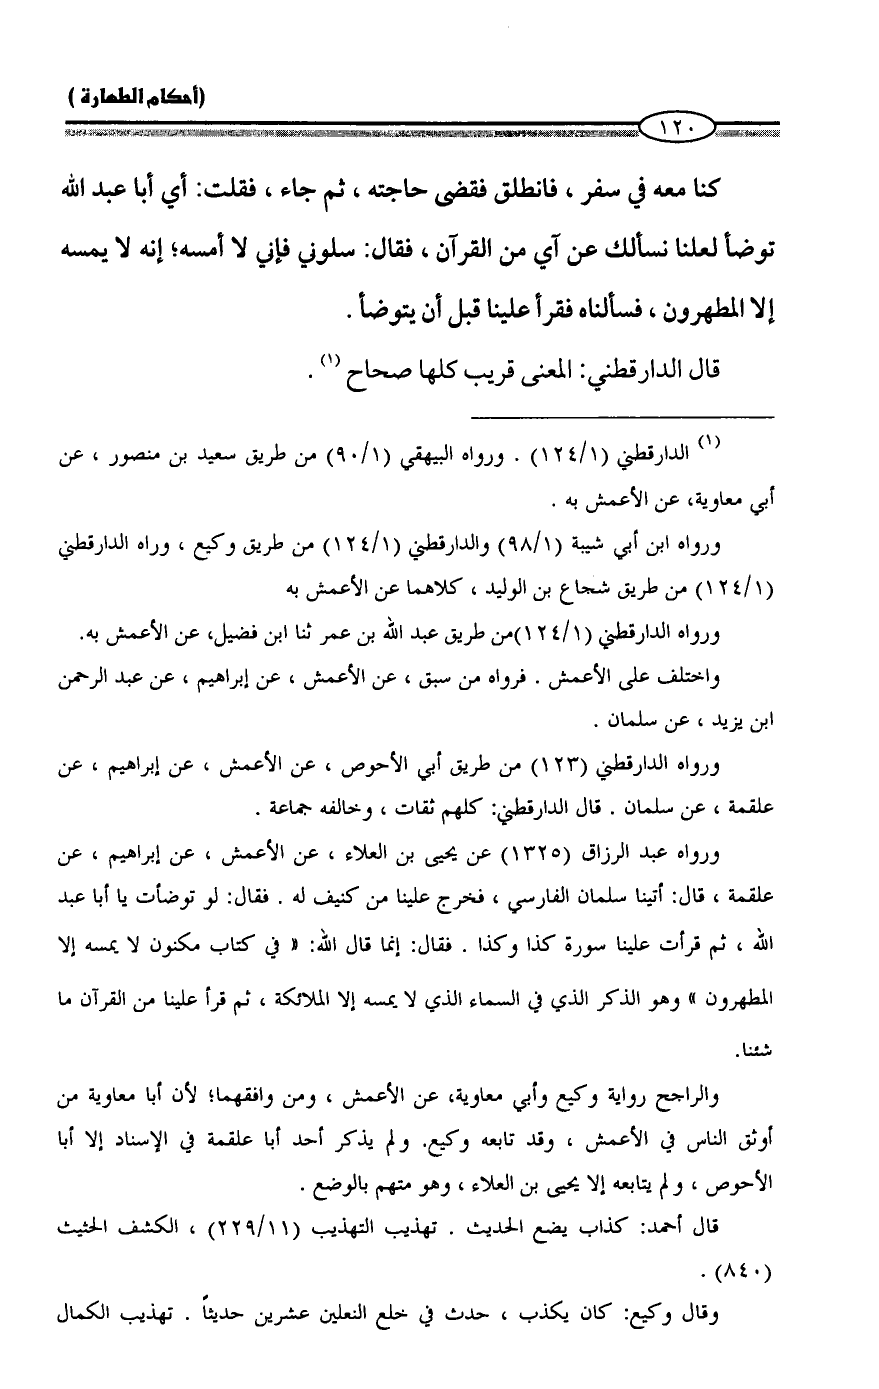 (أحكام الطهارة )
١٢٠
كنا معه في سفر ، فانطلق فقضى حاجته ، ثم جاء ، فقلت: أي أبا عبد الله
توضأ لعلنا نسألك عن آي من القرآن ، فقال: سلوني فإني لا أمسه؛ إنه لا يمسه
إلا المطهرون ، فسألناه فقرأ علينا قبل أن يتوضأ .
قال الدارقطني: المعنى قريب كلها صحاح (١) .
(١) الدارقطني (١٢٤/١) . ورواه البيهقي (٩٠/١) من طريق سعيد بن منصور ، عن
أبي معاوية، عن الأعمش به .
ورواه ابن أبي شيبة (٩٨/١) والدارقطني (١٢٤/١) من طريق وكيع ، وراه الدارقطني
(١٢٤/١) من طريق شجاع بن الوليد ، كلاهما عن الأعمش به
ورواه الدارقطني (١٢٤/١)من طريق عبد الله بن عمر ثنا ابن فضيل، عن الأعمش به.
واختلف على الأعمش . فرواه من سبق ، عن الأعمش ، عن إبراهيم ، عن عبد الرحمن
ابن يزيد ، عن سلمان .
ورواه الدارقطني (١٢٣) من طريق أبي الأحوص ، عن الأعمش ، عن إبراهيم ، عن
علقمة ، عن سلمان . قال الدارقطني: كلهم ثقات ، وخالفه جماعة .
ورواه عبد الرزاق (١٣٢٥) عن يحيى بن العلاء ، عن الأعمش ، عن إبراهيم ، عن
علقمة ، قال: أتينا سلمان الفارسي ، فخرج علينا من كنيف له . فقال: لو توضأت يا أبا عبد
الله ، ثم قرأت علينا سورة كذا وكذا . فقال: إنما قال الله: « في كتاب مكنون لا يمسه إلا
المطهرون » وهو الذكر الذي في السماء الذي لا يمسه إلا الملائكة ، ثم قرأ علينا من القرآن ما
شئنا.
والراجح رواية وكيع وأبي معاوية، عن الأعمش ، ومن وافقهما؛ لأن أبا معاوية من
أوثق الناس في الأعمش ، وقد تابعه وكيع. ولم يذكر أحد أبا علقمة في الإسناد إلا أبا
الأحوص ، ولم يتابعه إلا يحيى بن العلاء ، وهو متهم بالوضع .
قال أحمد: كذاب يضع الحديث . تهذيب التهذيب (٢٢٩/١١) ، الكشف الحثيث
(٨٤٠) .
وقال وكيع: كان يكذب ، حدث في خلع النعلين عشرين حديثاً . تهذيب الكمال